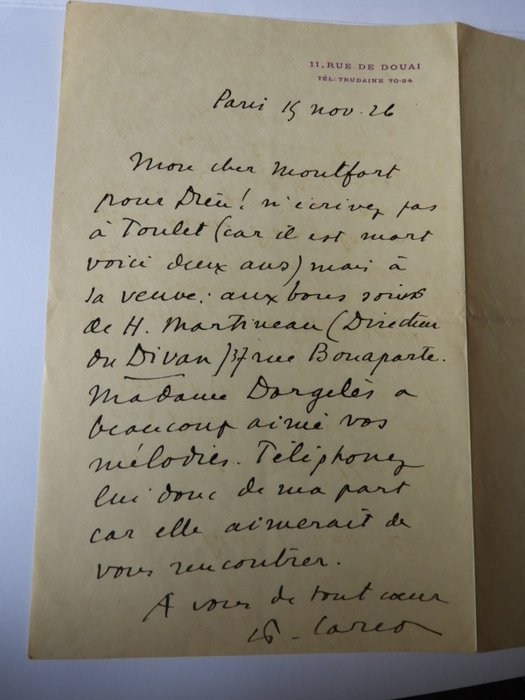 11, RUE DE DOUAI
TÉL: TRUDAINE 70-24
Paris 15 nov. 26
Mon cher Montfort
pour Dieu! n'écrivez pas
à Toulet (car il est mort
voici deux ans) mais à
sa veuve: aux bons soins
de H. Martineau (Directeur
du Divan) 37 rue Bonaparte.
Madame Dorgelès a
beaucoup aimé vos
mélodies. Téléphonez
lui donc de ma part
car elle aimerait de
vous rencontrer.
A vous de tout cœur
F. Carco